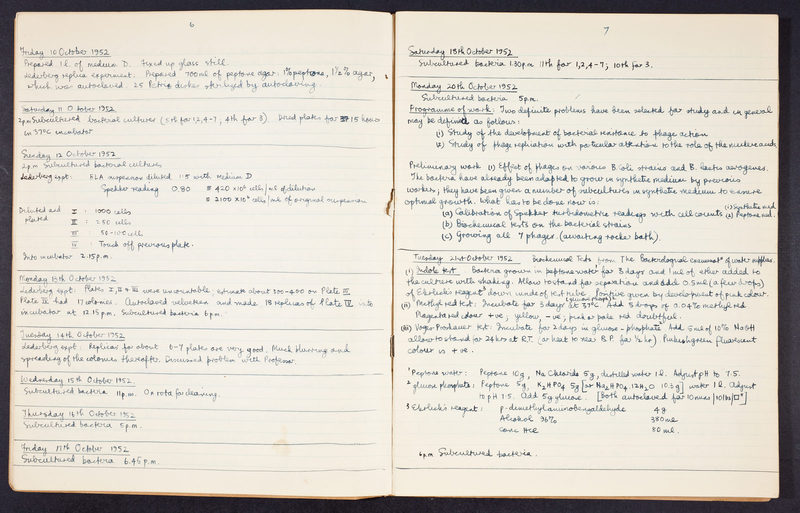 6
Friday 10 October 1952
Prepared 1 l. of medium D. Fixed up glass still.
Lederberg replica experiment. Prepared 700 ml of peptone agar: 1% peptone, 1½% agar,
which was autoclaved. 25 Petri dishes sterilized by autoclaving.
Saturday 11 October 1952
2 p.m. Subcultured bacterial cultures (5th for 1,2,4-7, 4th for 3). Dried plates for 15 hours
in 37°C incubator
Sunday 12 October 1952
2 p.m. Subcultured bacterial cultures
Lederberg expt: HLA suspension diluted 1:5 with medium D
Spekker reading 0.80 ≡ 420 × 10⁶ cells/ml of dilution
≡ 2100 × 10⁶ cells/ml of original suspension
Diluted and I : 1000 cells
plated II : 250 cells
III : 50-100 cells
IV : Touch off previous plate.
Into incubator 2.15 p.m.
Monday 13th October 1952
Lederberg expt: Plates I, II & III were uncountable, estimate about 300-400 on Plate III.
Plate IV had 17 colonies. Autoclaved velveteen and made 18 replicas of Plate IV into
incubator at 12.15 p.m. Subcultured bacteria 6 p.m.
Tuesday 14th October 1952
Lederberg expt: Replicas for about 6-7 plates are very good. Much blurring and
spreading of the colonies thereafter. Discussed problem with Professor.
Wednesday 15th October 1952
Subcultured bacteria 11 p.m. On rota for cleaning.
Thursday 16th October 1952
Subcultured bacteria 5 p.m.
Friday 17th October 1952
Subcultured bacteria 6.45 p.m.
7
Saturday 18th October 1952
Subcultured bacteria 1.30 p.m. 11th for 1,2,4-7; 10th for 3.
Monday 20th October 1952
Subcultured bacteria 5 p.m.
Programme of work: Two definite problems have been selected for study and in general
may be defined as follows:
(i) Study of the development of bacterial resistance to phage action
(ii) Study of phage replication with particular attention to the role of the nucleic acids
Preliminary work (i) Effect of phages on various B. coli strains and B. lactis aerogenes.
The bacteria have already been adapted to grow in synthetic medium by previous
workers; they have been given a number of subcultures in synthetic medium to ensure
optimal growth. What has to be done now is:
(a) Calibration of Spekker turbidometric readings with cell counts (1) Synthetic med. (2) Peptone med.
(b) Biochemical tests on the bacterial strains
(c) Growing all 7 phages. (awaiting rocker bath).
Tuesday 21st October 1952 Biochemical Tests from The Bacteriological examinatn of water supplies.
(i) Indole test. Bacteria grown in peptone water for 3 days and 1 ml of ether added to
the culture with shaking. Allow to stand for separation and add 0.5 ml (a few drops)
of Ehrlich's reagent³ down inside of test tube. Positive given by development of pink colour.
(ii) Methyl red test: Incubate for 3 days (glucose phosph²) at 37°C. Add 5 drops of 0.04% methyl red
Magenta red colour +ve; yellow, -ve; pink or pale red doubtful.
(iii) Voges Proskauer test: Incubate for 2 days in glucose-phosphate. Add 5 ml of 10% NaOH
allow to stand for 24 hrs at R.T. (or heat to near B.P. for ½ hr) Pinkish green fluorescent
colour is +ve.
¹ Peptone water: Peptone 10g, Na Chloride 5g, distilled water 1 l. Adjust pH to 7.5.
² glucose phosphate: Peptone 5g, K₂HPO₄ 5g [or Na₂HPO₄.12H₂O 10.3g] water 1 l. Adjust
to pH 7.5. Add 5g glucose. [Both autoclaved for 10 mins/10 lbs/□"]
³ Ehrlich's reagent: p-dimethylaminobenzaldehyde 4g
Alcohol 96% 380 ml
conc HCl 80 ml.
6 p.m. Subcultured bacteria.